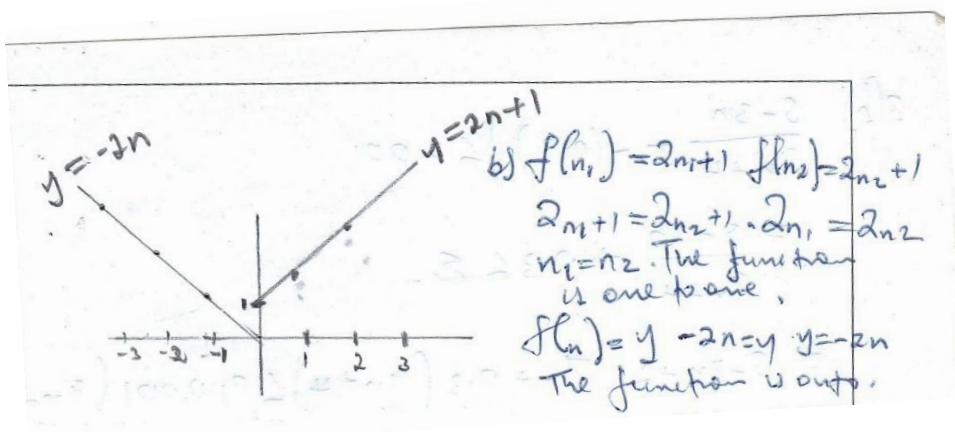 y = -2n
y = 2n+1
1
-3 -2 -1 1 2 3
b) f(n₁) = 2n₁+1 f(n₂) = 2n₂+1
2n₁+1 = 2n₂+1. 2n₁ = 2n₂
n₁ = n₂. The function
is one to one.
f(n) = y -2n = y y = -2n
The function is onto.